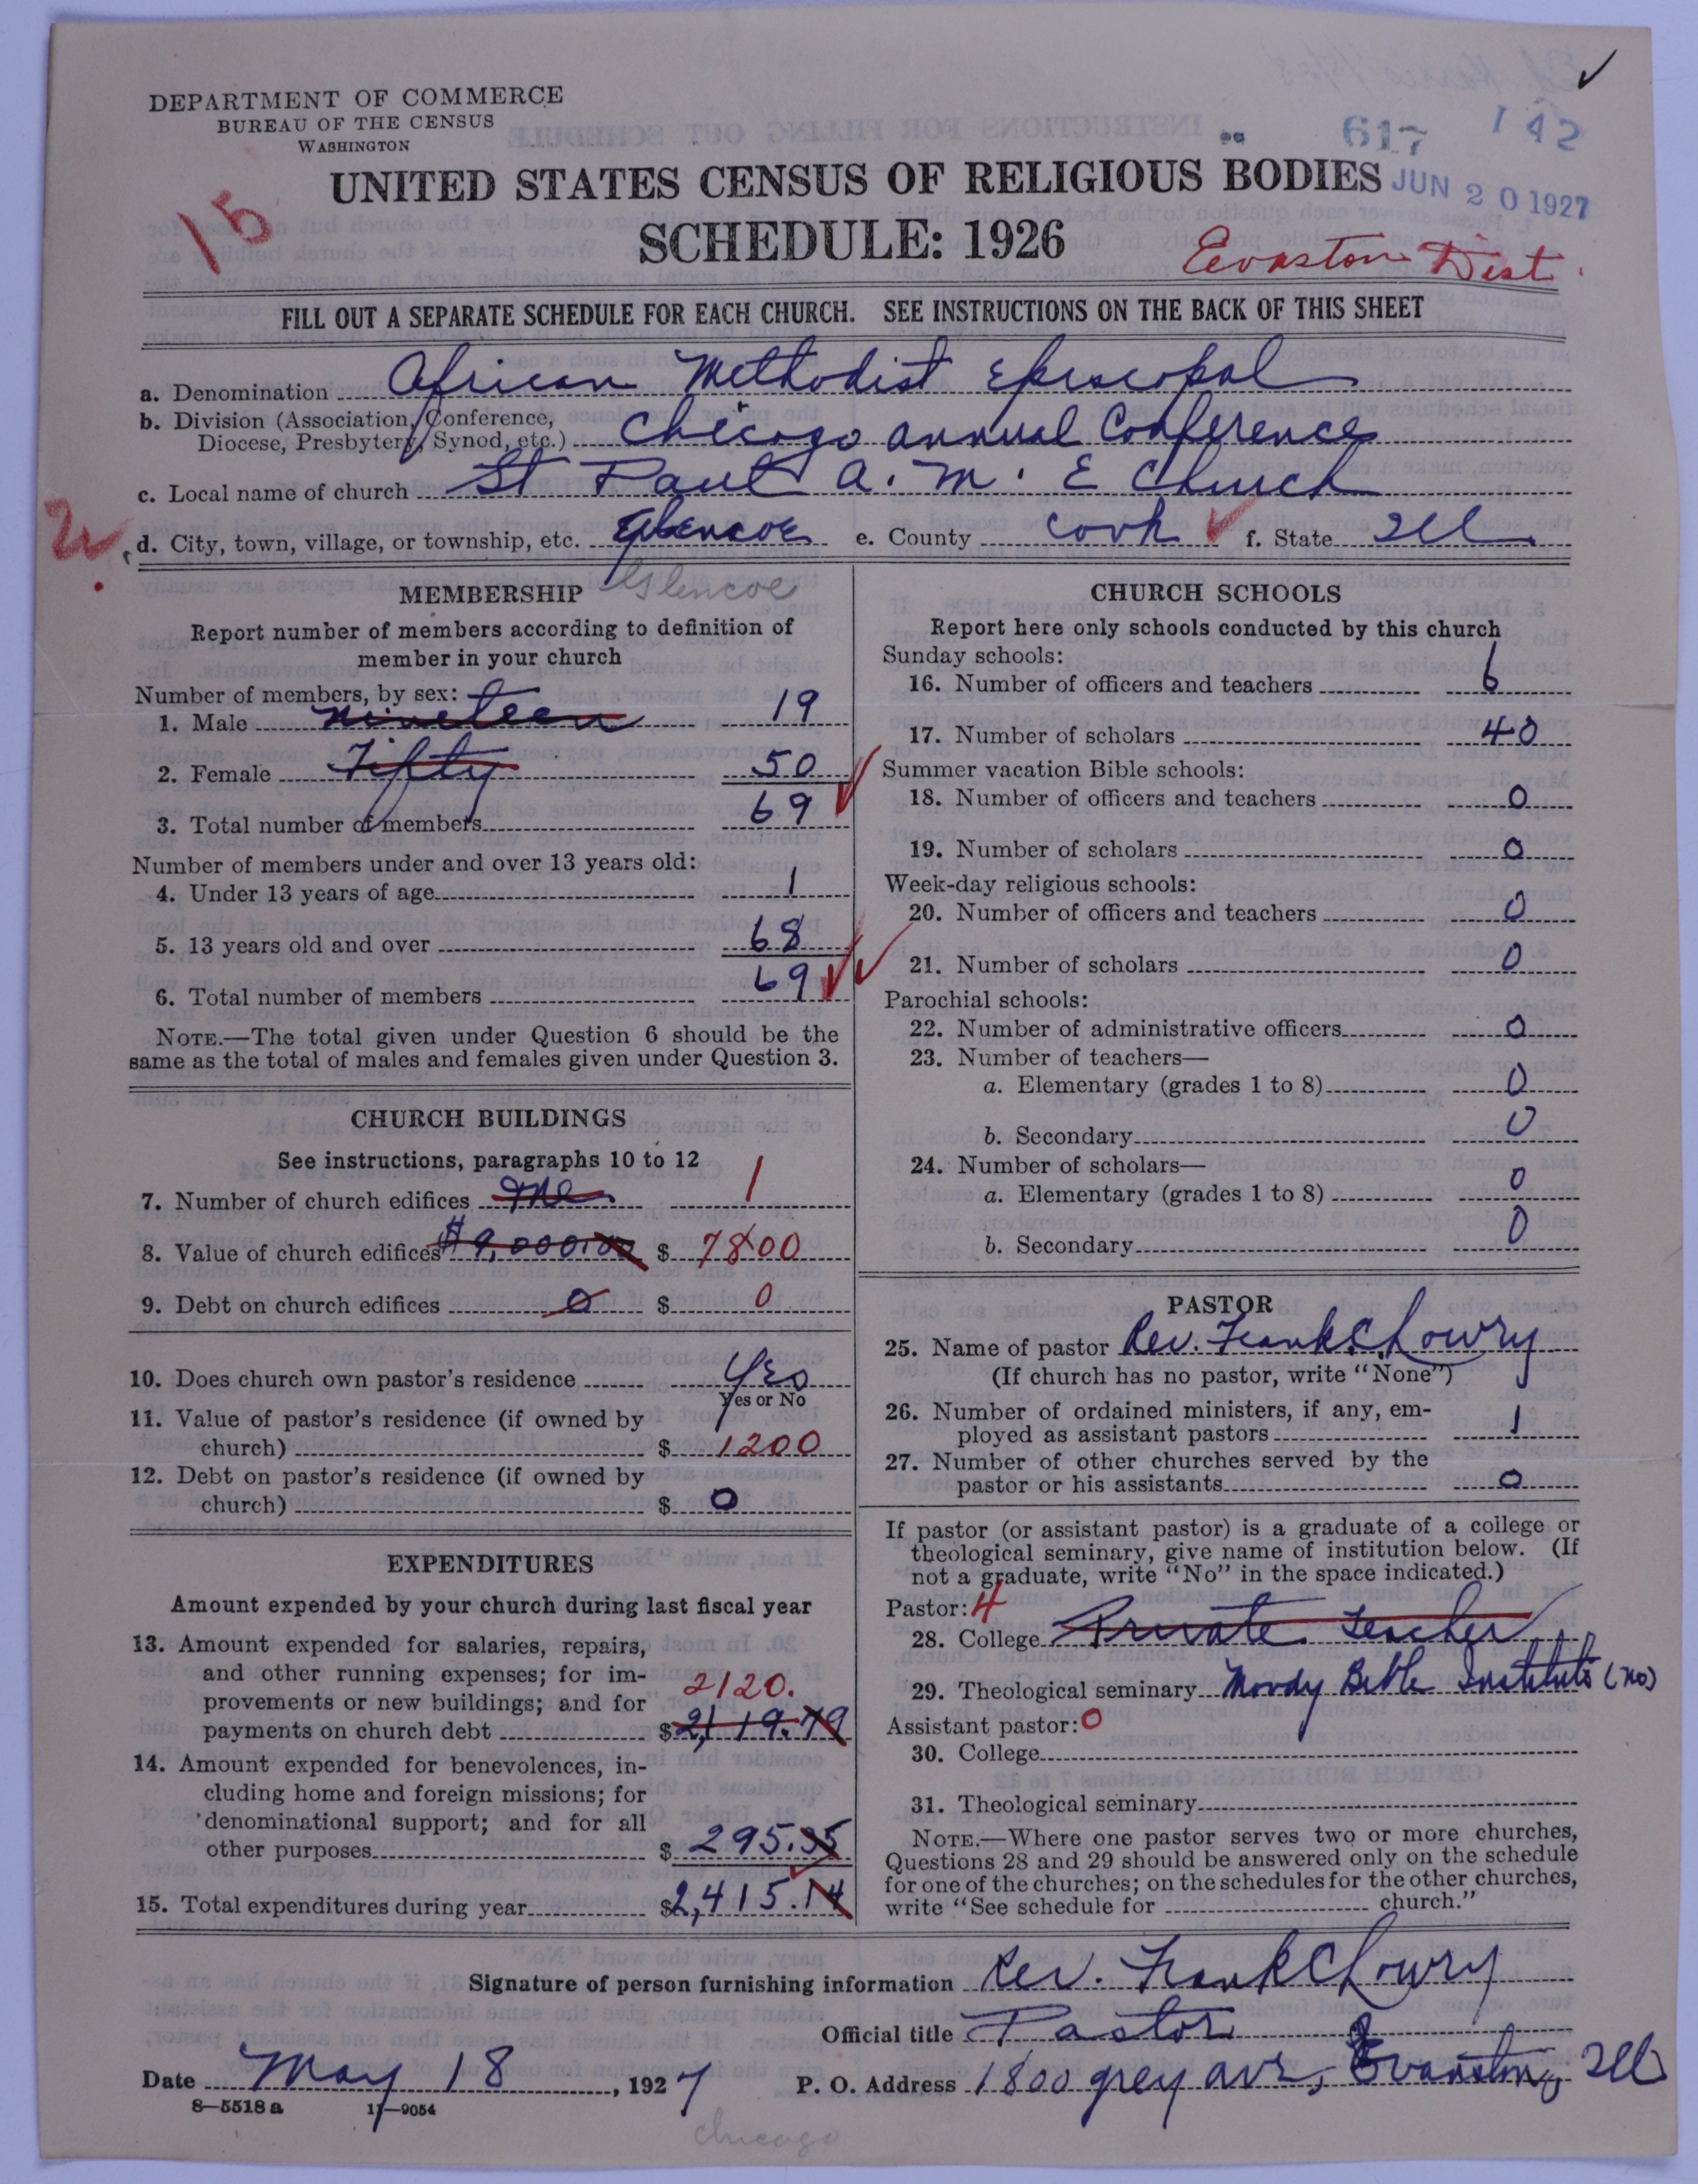 DEPARTMENT OF COMMERCE
BUREAU OF THE CENSUS
WASHINGTON
617 142
UNITED STATES CENSUS OF RELIGIOUS BODIES
JUN 20 1927
15
SCHEDULE: 1926
Evaston Dist.
FILL OUT A SEPARATE SCHEDULE FOR EACH CHURCH. SEE INSTRUCTIONS ON THE BACK OF THIS SHEET
a. Denomination African Methodist Episcopal
b. Division (Association, Conference,
Diocese, Presbytery, Synod, etc.) Chicago annual Conference
c. Local name of church St Paul A. M. E Church
d. City, town, village, or township, etc. Glencoe e. County Cook f. State Ill.
Glencoe
MEMBERSHIP
Report number of members according to definition of
member in your church
Number of members, by sex:
1. Male nineteen 19
2. Female Fifty 50
3. Total number of members 69
Number of members under and over 13 years old:
4. Under 13 years of age 1
5. 13 years old and over 68
6. Total number of members 69
NOTE.—The total given under Question 6 should be the
same as the total of males and females given under Question 3.
CHURCH BUILDINGS
See instructions, paragraphs 10 to 12
7. Number of church edifices One 1
8. Value of church edifices $9,000.00 $ 7800
9. Debt on church edifices 0 $ 0
10. Does church own pastor's residence Yes
Yes or No
11. Value of pastor's residence (if owned by
church) $ 1200
12. Debt on pastor's residence (if owned by
church) $ 0
EXPENDITURES
Amount expended by your church during last fiscal year
13. Amount expended for salaries, repairs,
and other running expenses; for im-
provements or new buildings; and for 2120.
payments on church debt $2,119.79
14. Amount expended for benevolences, in-
cluding home and foreign missions; for
denominational support; and for all
other purposes $ 295.35
15. Total expenditures during year $2,415.14
CHURCH SCHOOLS
Report here only schools conducted by this church
Sunday schools:
16. Number of officers and teachers 6
17. Number of scholars 40
Summer vacation Bible schools:
18. Number of officers and teachers 0
19. Number of scholars 0
Week-day religious schools:
20. Number of officers and teachers 0
21. Number of scholars 0
Parochial schools:
22. Number of administrative officers 0
23. Number of teachers—
a. Elementary (grades 1 to 8) 0
b. Secondary 0
24. Number of scholars—
a. Elementary (grades 1 to 8) 0
b. Secondary 0
PASTOR
25. Name of pastor Rev. Frank C Lowry
(If church has no pastor, write "None")
26. Number of ordained ministers, if any, em-
ployed as assistant pastors 1
27. Number of other churches served by the
pastor or his assistants 0
If pastor (or assistant pastor) is a graduate of a college or
theological seminary, give name of institution below. (If
not a graduate, write "No" in the space indicated.)
Pastor: 4
28. College Private Teacher
29. Theological seminary Moody Bible Institute (no)
Assistant pastor: 0
30. College
31. Theological seminary
NOTE.—Where one pastor serves two or more churches,
Questions 28 and 29 should be answered only on the schedule
for one of the churches; on the schedules for the other churches,
write "See schedule for church."
Signature of person furnishing information Rev. Frank C Lowry
Official title Pastor
Date May 18, 1927 P. O. Address 1800 grey ave, Evanston, Ill
8—5518a 11—9054
Chicago